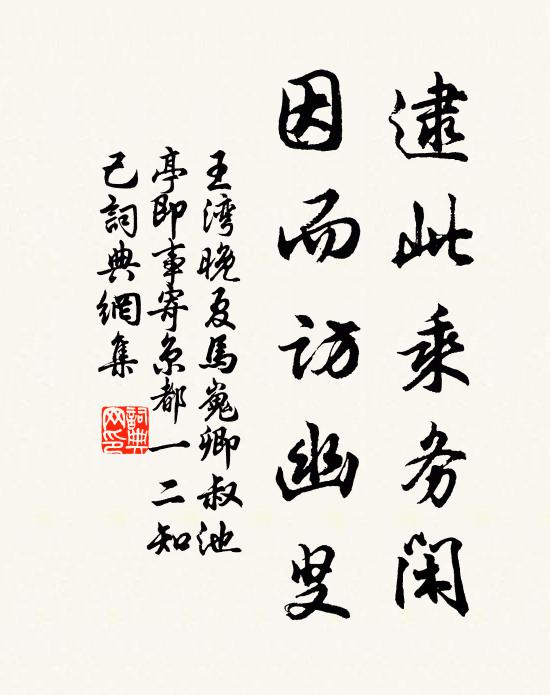 逮此乘务闲
因而访幽叟
王湾晚夏馬嵬卿叔池
亭即事寄京都一二知
己詞典網集
詞典网印